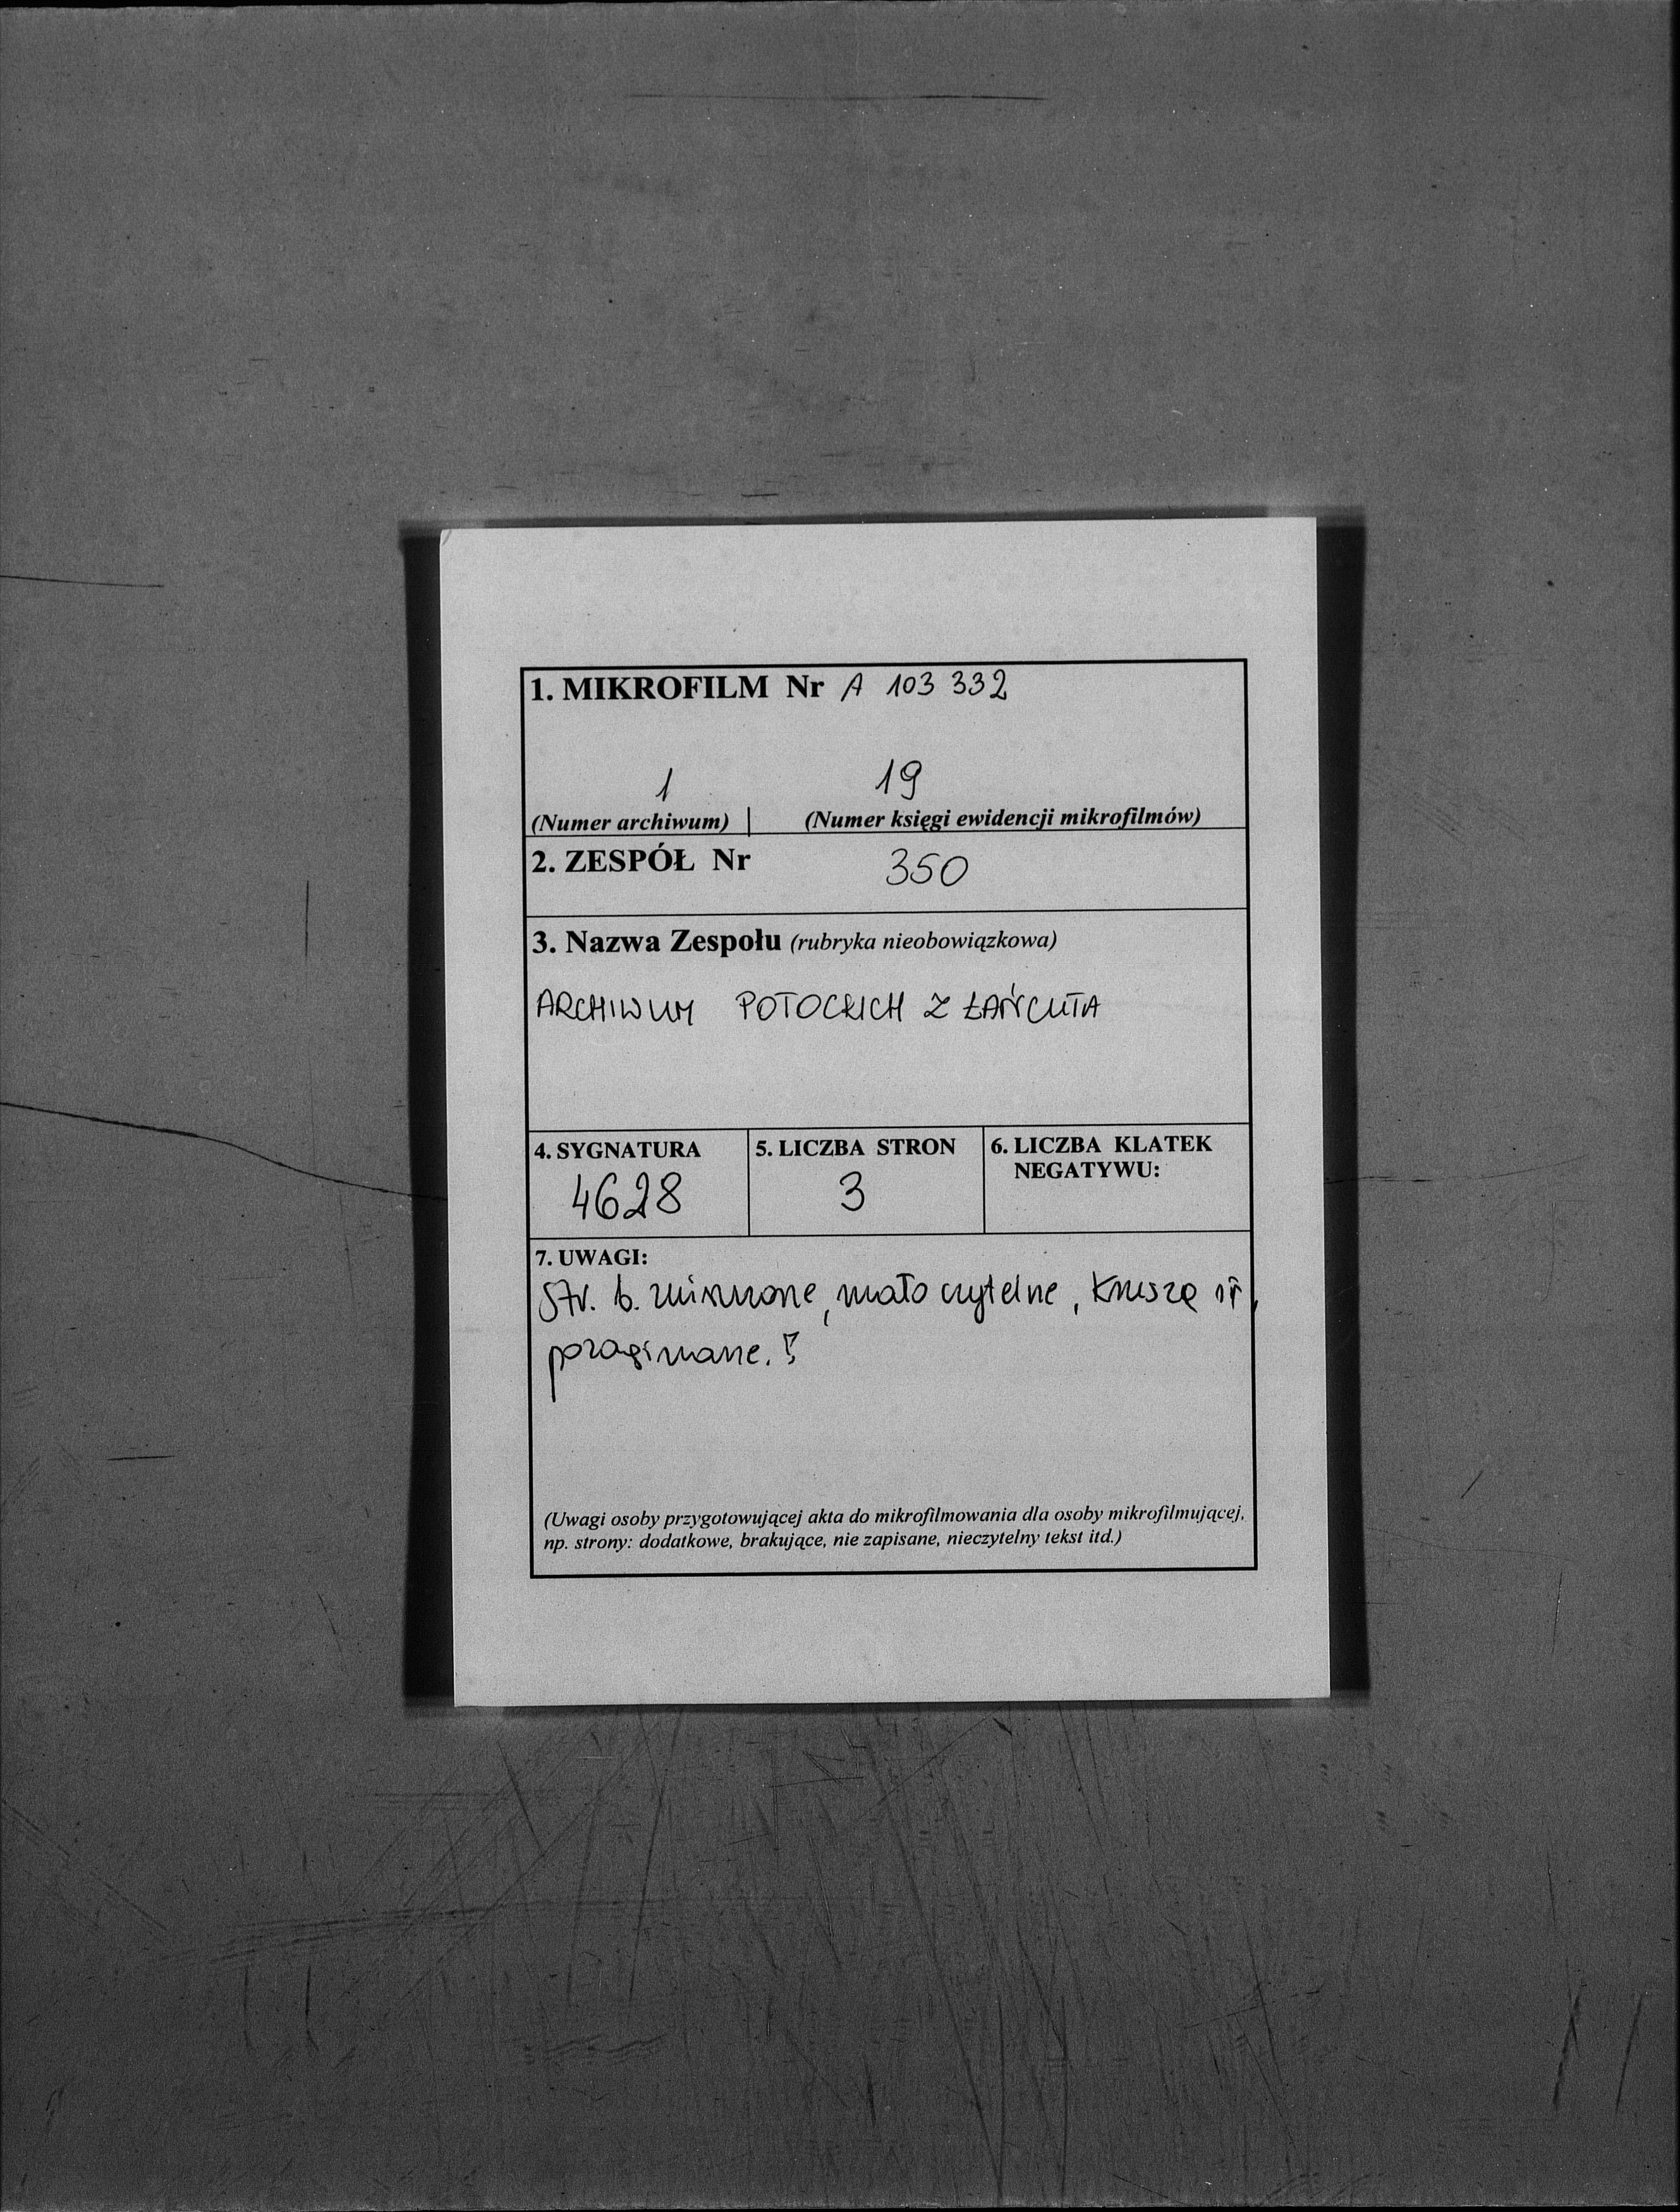 1. MIKROFILM Nr A 103 332
1 19
(Numer archiwum) | (Numer księgi ewidencji mikrofilmów)
2. ZESPÓŁ Nr 350
3. Nazwa Zespołu (rubryka nieobowiązkowa)
ARCHIWUM POTOCKICH Z ŁAŃCUTA
4. SYGNATURA 5. LICZBA STRON 6. LICZBA KLATEK
NEGATYWU:
4628 3
7. UWAGI:
Str. b. zniszczone, mało czytelne, kruszą się,
pozaginane.!
(Uwagi osoby przygotowującej akta do mikrofilmowania dla osoby mikrofilmującej,
np. strony: dodatkowe, brakujące, nie zapisane, nieczytelny tekst itd.)